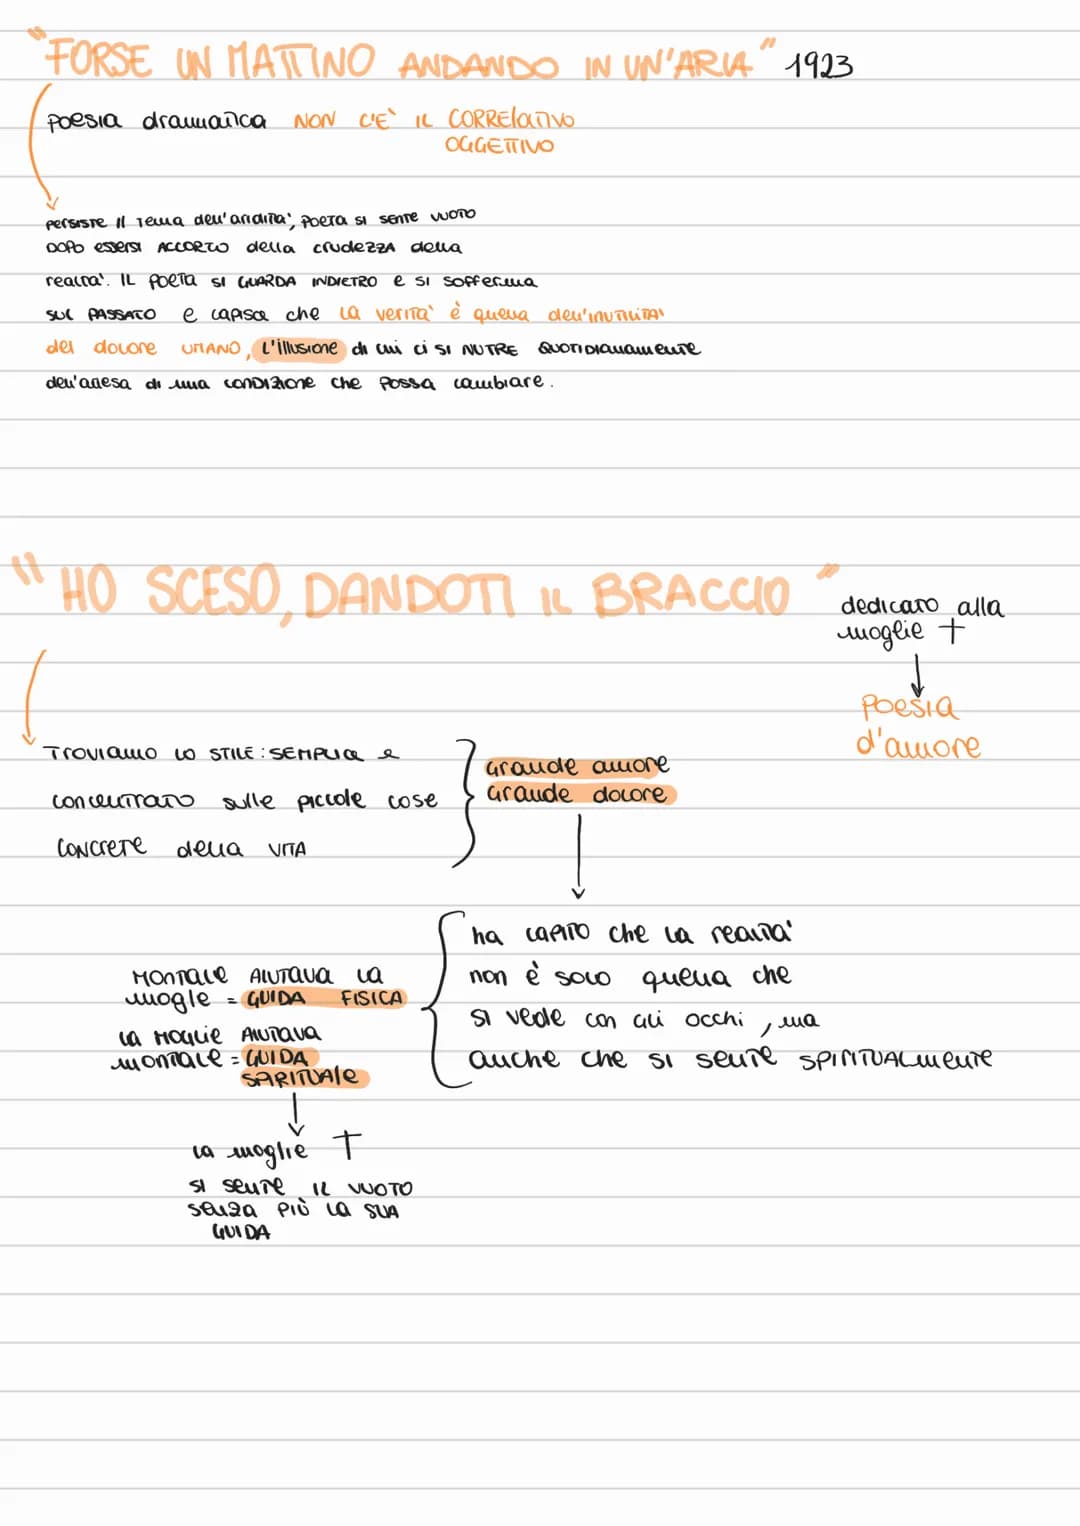 "FORSE UN MATTINO ANDANDO IN UN'ARIA" 1923
poesia drammatica NON C'E' IL CORRELATIVO
OGGETTIVO
PERSISTE Il Tema dell'aridità, POETA SI SENTE VUOTO
DOPO ESSERSI ACCORTO della crudezza della
realtà. IL POETA SI GUARDA INDIETRO e SI SOFFERMA
SUL PASSATO e CAPISCE che LA VERITA' è quella dell'INUTILITA'
del dolore UMANO, L'illusione di cui ci SI NUTRE QUOTIDIANAMENTE
dell'attesa di una condizione che POSSA cambiare.
"HO SCESO, DANDOTI IL BRACCIO"
dedicato alla
moglie †
↓
Poesia
d'amore
TROVIAMO LO STILE: SEMPLICE e
CONCENTRATO sulle piccole cose
CONCRETE della VITA
Grande amore
Grande dolore
ha CAPITO che LA realtà'
non è solo quella che
SI vede con gli occhi, ma
anche che SI sente SPIRITUALMENTE
MONTALE AIUTAVA LA
mogle = GUIDA FISICA
LA MOGLIE AIUTAVA
MONTALE = GUIDA
SPARITUALE
LA moglie †
SI SENTE IL VUOTO
senza PIÙ LA SUA
GUIDA